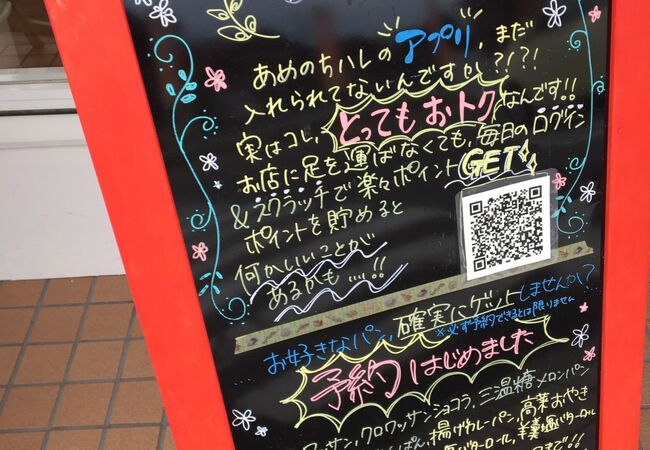 あめのちハレのアプリ、まだ
入れられてないんですか?!?!
実はコレ、とってもおトクなんです!!
お店に足を運ばなくても、毎日のログイン
&スクラッチで楽々ポイントGET
ポイントを貯めると
何かいいことが
あるかも…!!
お好きなパン、確実にゲットしませんか?
※必ず予約できるとは限りません
予約はじめました
ワッサン、クロワッサンショコラ、三温糖メロンパン
ぱん、揚げカレーパン、高菜おやき
バターロール、羊羹塩バターロール
まで!!